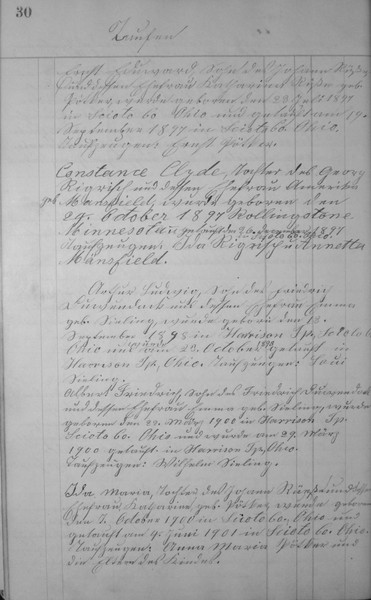 30
Taufen
Ernst Edward, Sohn des Johann
und dessen Ehefrau Katharina geb
wurde geboren den 23 1897
in Scioto Co Ohio und getauft am 19
September 1897 in Scioto Co. Ohio.
Taufzeugen: Ernst
Constance Clyde, Tochter des Georg
und dessen Ehefrau
geb Mansfield, wurde geboren den
29. October 1897 Rollingstone
Minnesota u getauft den 26 December 1897
Scioto Co. Ohio.
Taufzeugen: Ida u Annetta
Mansfield.
Arthur Ludwig, Sohn des Friedrich
und dessen Ehefrau Emma
geb. Sieling, wurde geboren den 12.
September 1898 in Harrison Tp, Scioto Co
Ohio und am 23. October 1898 getauft in
Harrison Tp, Ohio. Taufzeugen:
Sieling.
Albert Friedrich Sohn des Friedrich
und dessen Ehefrau Emma geb. Sieling, wurde
geboren den 22. 1900 in Harrison Tp.
Scioto Co. Ohio und wurde am 29. März
1900 getauft in Harrison Tp, Ohio.
Taufzeugen: Wilhelm Sieling.
Ida Maria, Tochter des Johann und dessen
Ehefrau Katharine geb. wurde geboren
den 7. October 1900 in Scioto Co, Ohio und
getauft am 9. Juni 1901 in Scioto Co. Ohio.
Taufzeugen: Anna Maria und
die Eltern des Kindes.